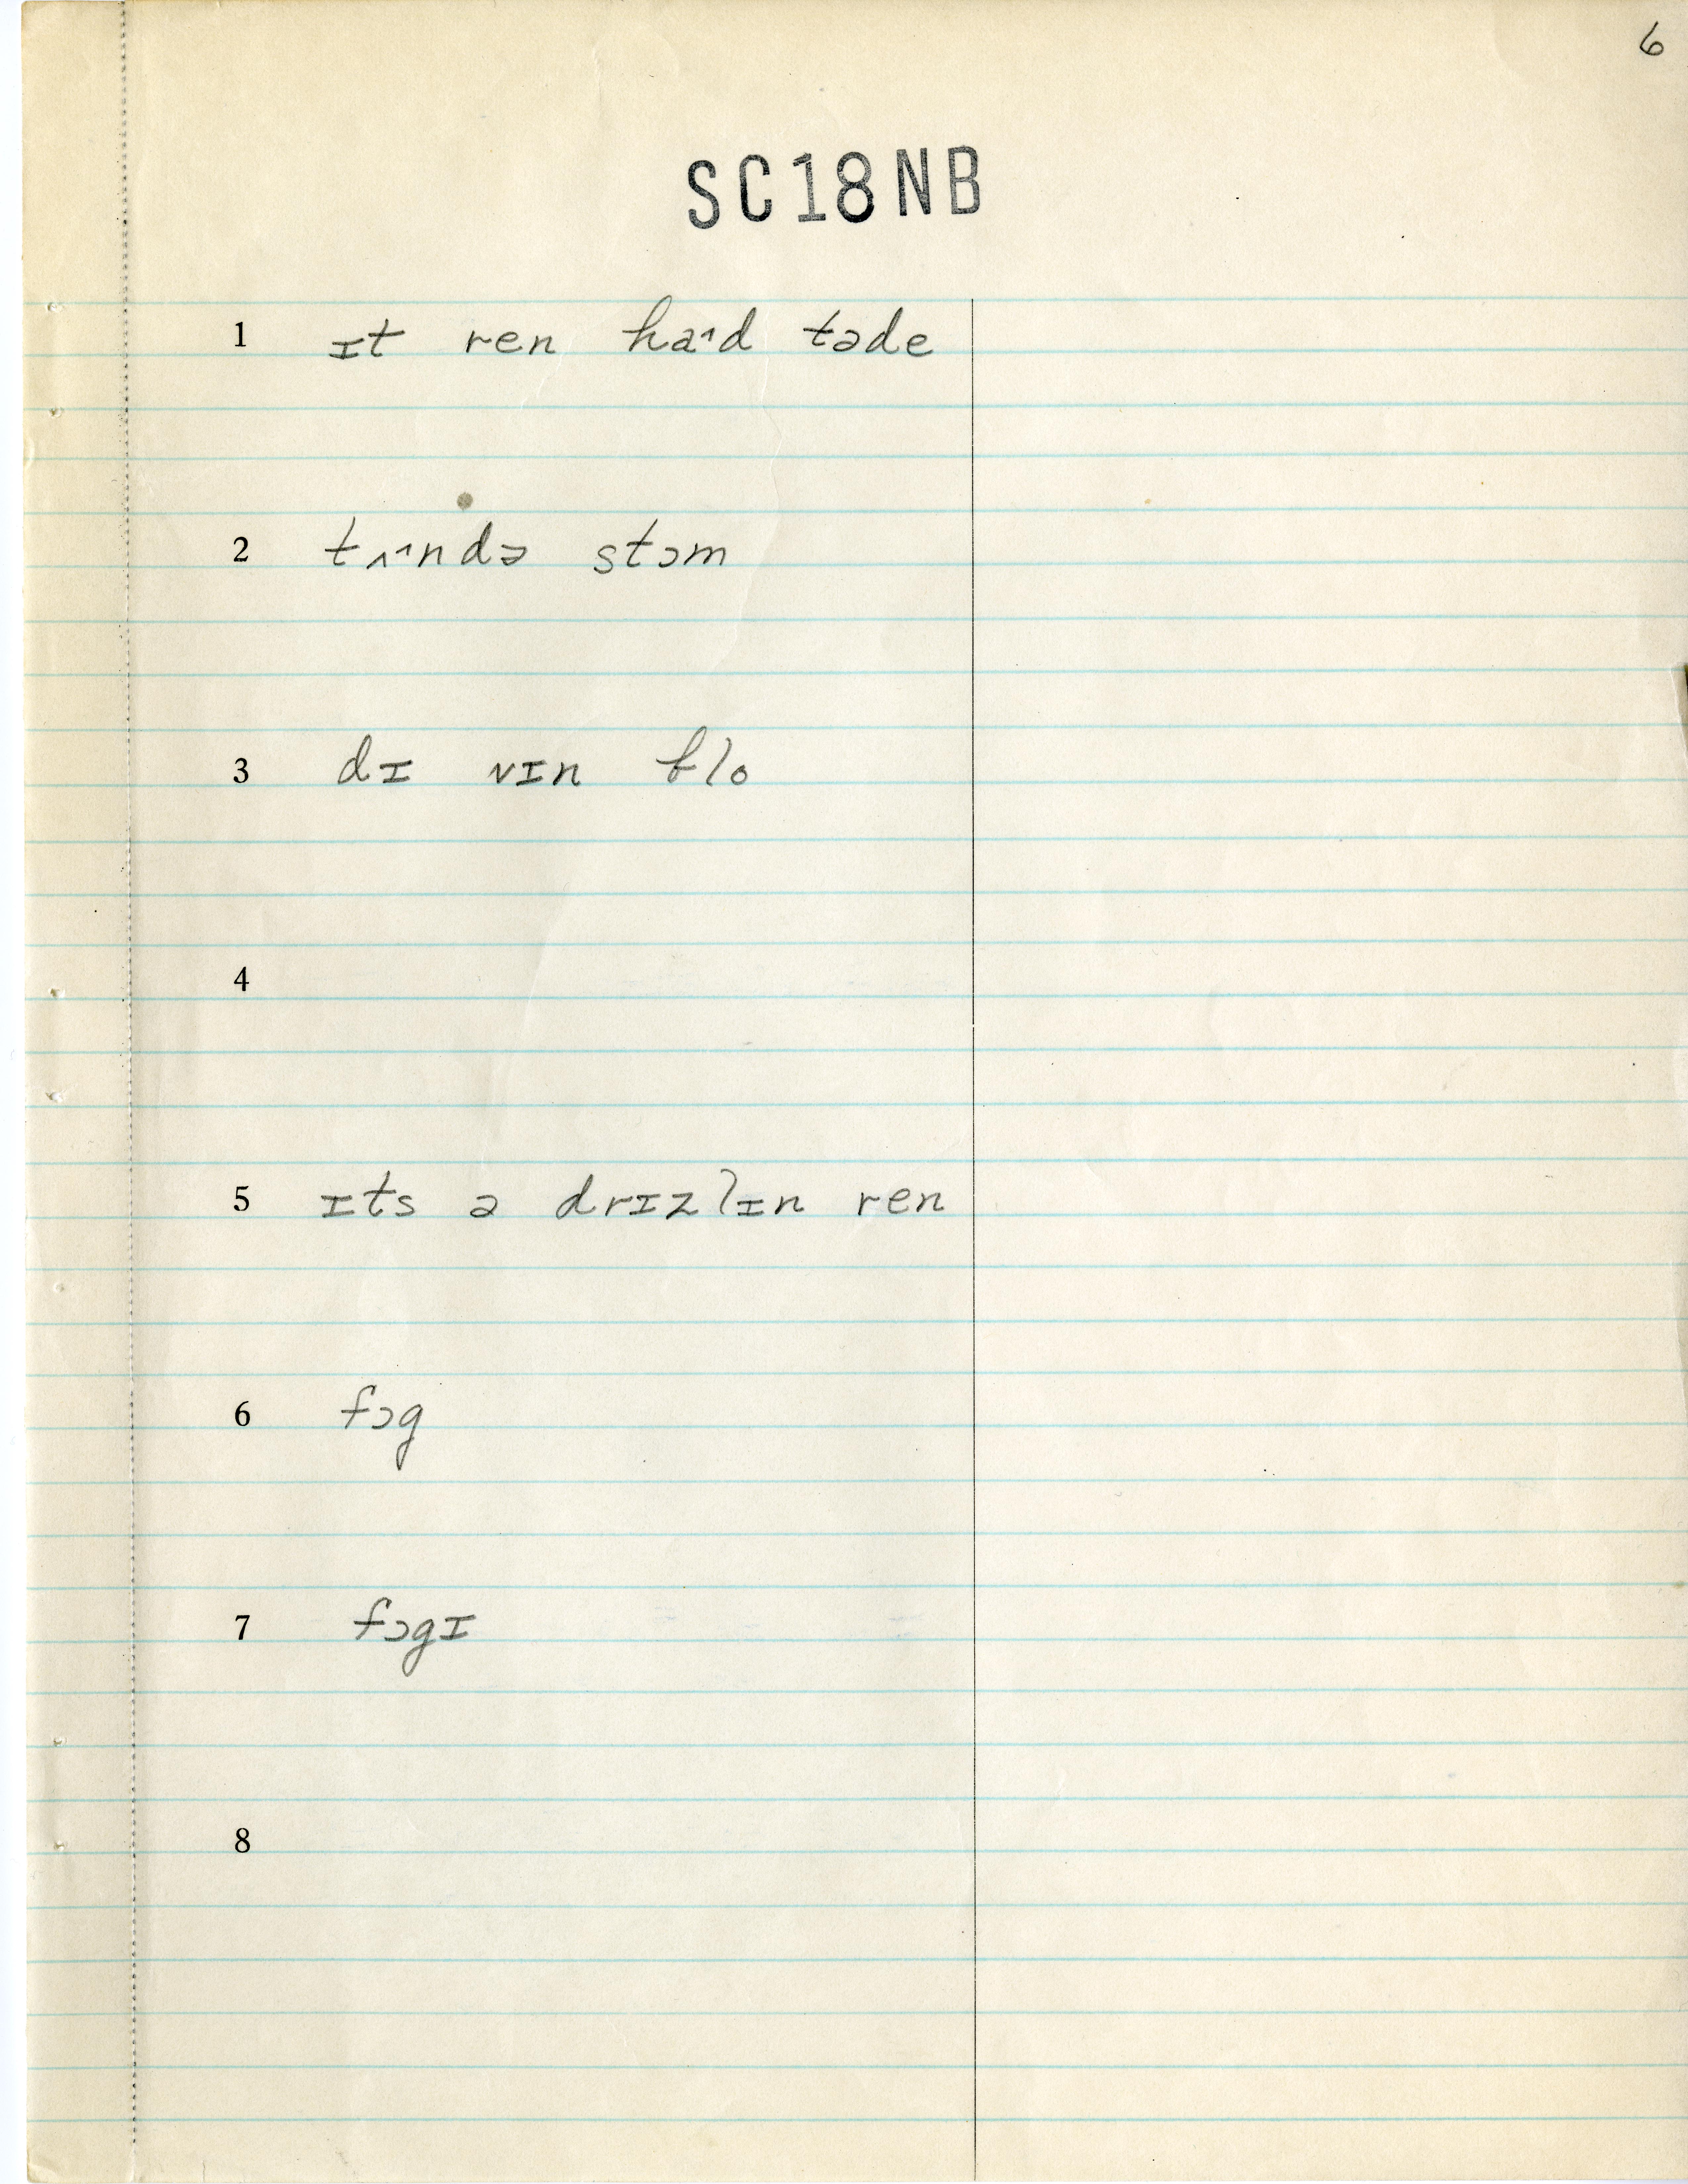 6
SC18NB
1 ɪt ren haˑd təde
2 tʌˑndə stɔm
3 dɪ vɪn blo
4
5 ɪts ə drɪzlɪn ren
6 fɔg
7 fɔgɪ
8